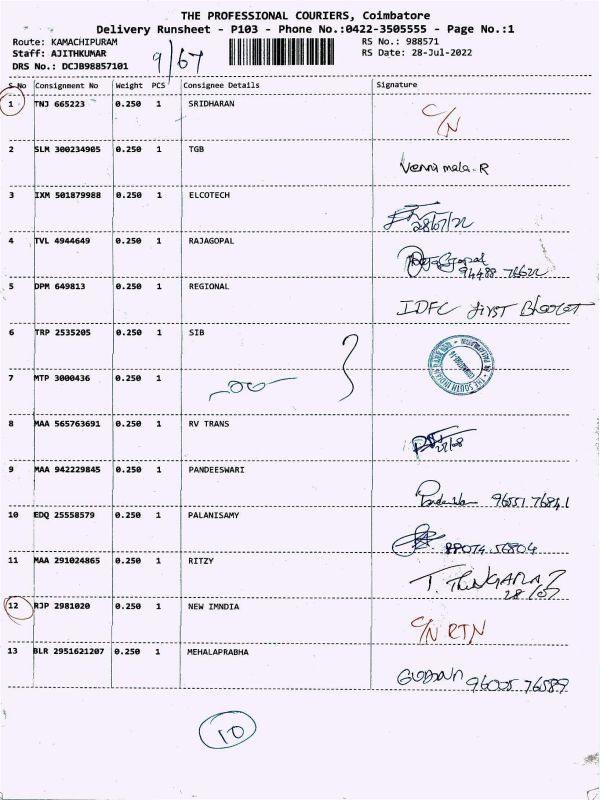 THE PROFESSIONAL COURIERS, Coimbatore
Delivery Runsheet - P103 - Phone No.:0422-3505555 - Page No.:1
Route: KAMACHIPURAM RS No.: 988571
Staff: AJITHKUMAR 9/67 RS Date: 28-Jul-2022
DRS No.: DCJB98857101
S No Consignment No Weight PCS Consignee Details Signature
1 TNJ 665223 0.250 1 SRIDHARAN C/N
2 SLM 300234905 0.250 1 TGB Vennimala.R
3 IXM 501879988 0.250 1 ELCOTECH 28/07/22
4 TVL 4944649 0.250 1 RAJAGOPAL Rajagopal
94488 76622
5 DPM 649813 0.250 1 REGIONAL IDFC first Bharat
6 TRP 2535205 0.250 1 SIB THE SOUTH INDIAN BANK
7 MTP 3000436 0.250 1
8 MAA 565763691 0.250 1 RV TRANS
9 MAA 942229845 0.250 1 PANDEESWARI
10 EDQ 25558579 0.250 1 PALANISAMY
11 MAA 291024865 0.250 1 RITZY T. THNGARAJ
28/07
12 RJP 2981020 0.250 1 NEW IMNDIA C/N RTN
13 BLR 2951621207 0.250 1 MEHALAPRABHA 96005 76589
10